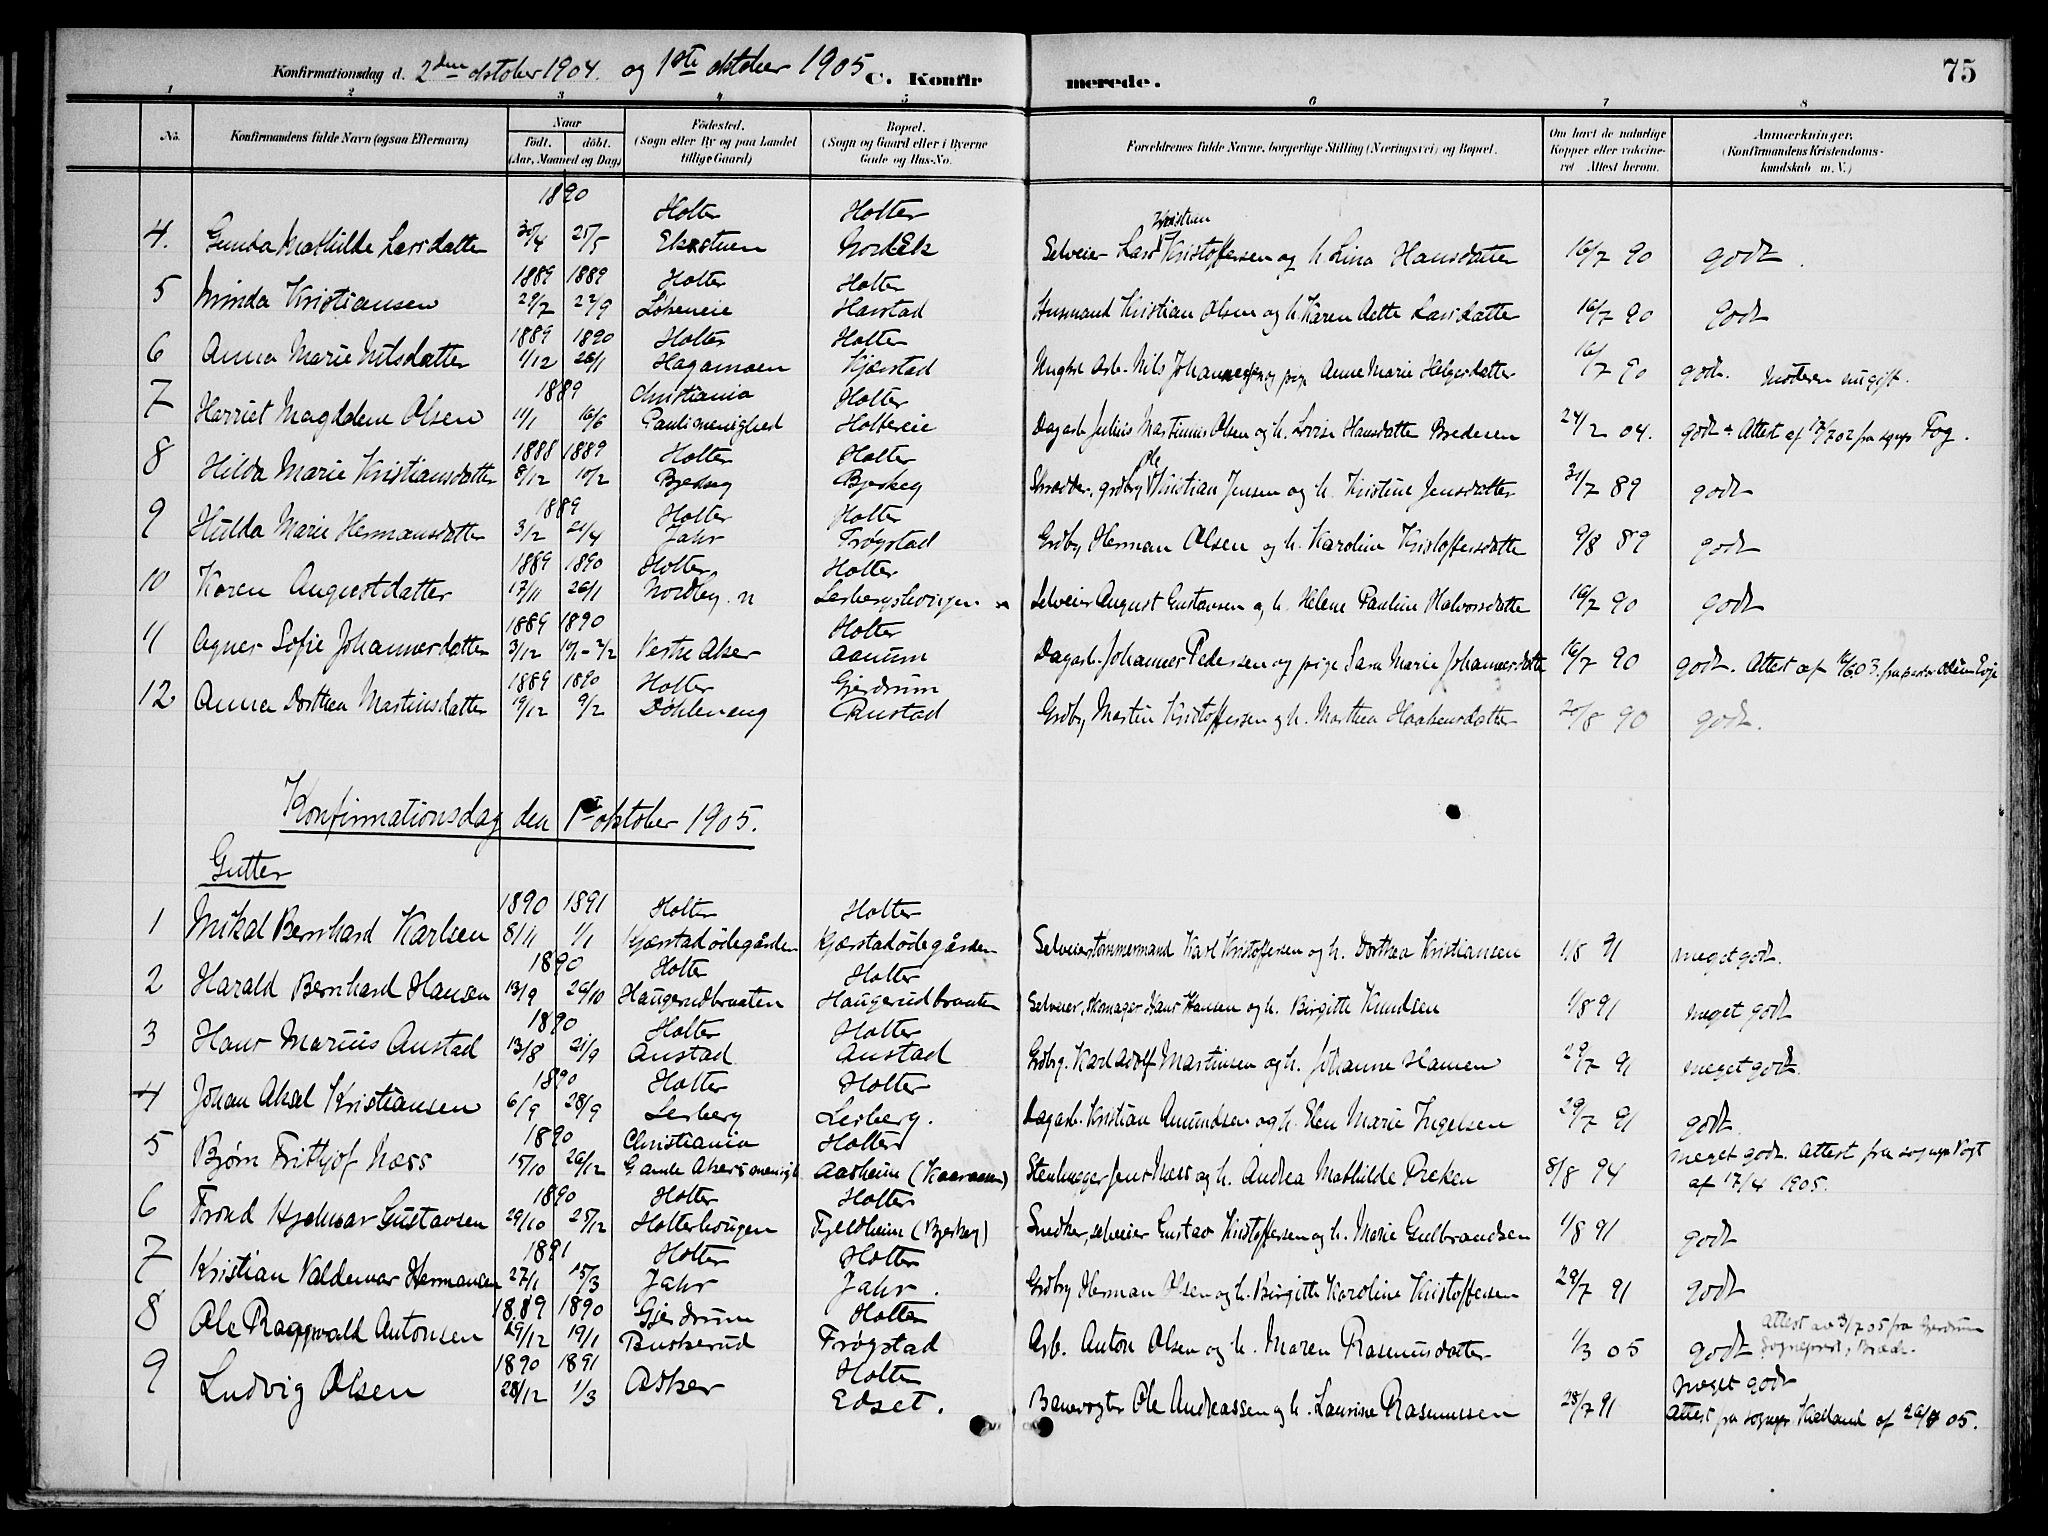 75
Konfirmationsdag d. 2den oktober 1904. og 1ste oktober 1905 C. Konfirmerede.
1 2 3 4 5 6 7 8
No. Konfirmandens fulde Navn (ogsaa Efternavn) Naar födt. döbt. (Aar, Maaned og Dag) Födested. (Sogn eller By og paa Landet tillige Gaard) Bopæl. (Sogn og Gaard eller i Byerne Gade og Hus-No. Forældrenes fulde Navne, borgerlige Stilling (Næringsvei) og Bopæl. Om havt de naturlige Kopper eller vaccineret Attest herom. Anmærkninger. (Konfirmandens Kristendomskundskab m.V.)
1890 Holter Holter Kristian
4. Gunda Mathilde Larsdatter 30/4 25/5 Ekstuen Nordek Selveier Lars Kristoffersen og h. Lina Hansdatter 16/7 90 godt.
1889 1889 Holter Holter
5 Minda Kristiansen 29/7 22/9 Løkeneie Harstad Husmand Kristian Olsen og h. Karen Dette Larsdatter 16/7 90 godt
1889 1890 Holter Holter
6 Anna Marie Nilsdatter 1/12 26/1 Hagamoen Kjærstad Ungk. Arb. Nils Johannesen og pige Anne Marie Helgesdatter 16/7 90 godt. Moderen ungift.
1889 Christiania Holter
7 Harriet Magdalene Olsen 11/1 16/6 Pauli menighed Holtereie Dagarb. Julius Martinius Olsen og h. Lovise Hansdatter Bredesen 24/2 04. godt. Attest af 17/7 02 fra sgnpr. Fog.
1888 1889 Holter Holter
8 Hilda Marie Kristiansdatter 8/12 10/2 Bjerkeg Skrædder, grdbrg Ole Kristian Jensen og h. Kristine Jensdatter 31/7 89 godt
1889 Holter Holter
9 Hulda Marie Hermansdatter 3/2 21/4 Jahr Frogstad Grdbr. Herman Olsen og h. Karoline Kristoffersdatter 9/8 89 godt
1889 1890 Holter Holter
10 Karen Augustdatter 17/11 26/1 Nordby. n Lerbergshougen n Selveier August Gustavsen og h. Helene Pauline Halvorsdatter 16/7 90 godt
1889 1890 Holter
11 Agnes Sofie Johannesdatter 3/12 Vestre Aker Aanum Dagarb. Johannes Pedersen og pige Sara Marie Johannesdatter 16/7 90 godt. Attest af
1889 1890 Holter Gjerdrum
12 Anna Dorthea Martinsdatter 19/12 9/2 Døhleneng Anstad Grdbr. Martin Kristoffersen og h. Marthea Haakensdatter 20/8 90 godt.
Konfirmationsdag den 1ste oktober 1905.
Gutter
1890 1891 Holter Holter
1 Mikal Bernhard Karlsen 8/11 1/1 Kjærstadødegården Kjærstadødegården Selveier tømmermand Karl Kristoffersen og h. Dorthea Kristiansen 1/8 91 meget godt.
1890 Holter Holter
2 Harald Bernhard Hansen 13/9 26/10 Haugerudbraaten Haugerudbraaten Selveier, skomager Hans Hansen og h. Birgitte Knudsen 1/8 91 meget godt
1890 Holter Holter
3 Hans Marius Anstad 13/8 21/9 Anstad Anstad Grdbrg. Karl Adolf Martinsen og h. Johanne Hansen 29/7 91 meget godt.
1890 Holter Holter
4 Johan Aksel Kristiansen 6/9 28/9 Lerberg Lerberg. Dagarb. Kristian Amundsen og h. Elen Marie Ingelsen 29/7 91 godt.
1890 Christiania Holter
5 Bjørn Frithjof Næss 15/10 26/12 Gamle Akers menigh. Aasheim Stenhugger Jens Næss og h. Andrea Mathilde Preken 8/8 94 meget godt. Attest fra sognepr. Vogt af 17/4 1905.
1890 Holter Holter
6 Trond Hjalmar Gustavsen 29/10 25/12 Holterhougen Fjeldheim (Bjerkeg) Snedker, selveier Gustav Kristoffersen og h. Marie Gulbrandsen 1/8 91 godt
1891 Holter Holter
7 Kristian Valdemar Hermansen 27/1 15/3 Jahr Jahr. Grdbrg Herman Olsen og h. Birgitte Karoline Kristoffersen 29/7 91 godt
1889 1890 Gjerdrum Holter
8 Ole Ragnvald Antonsen 29/12 19/1 Buskerud Frogstad Arb. Anton Olsen og h. Maren Rasmusdatter 1/3 05 godt Attest av 3/7 05 fra Gjerdrum Sogneprest,
1890 1891 Holter
9 Ludvig Olsen 28/12 1/3 Asker Edset. Banevogter Ole Andreassen og h. Laurine Rasmussen 28/7 91 meget godt
Attest fra sognepr. Kielland af 26/8 05.